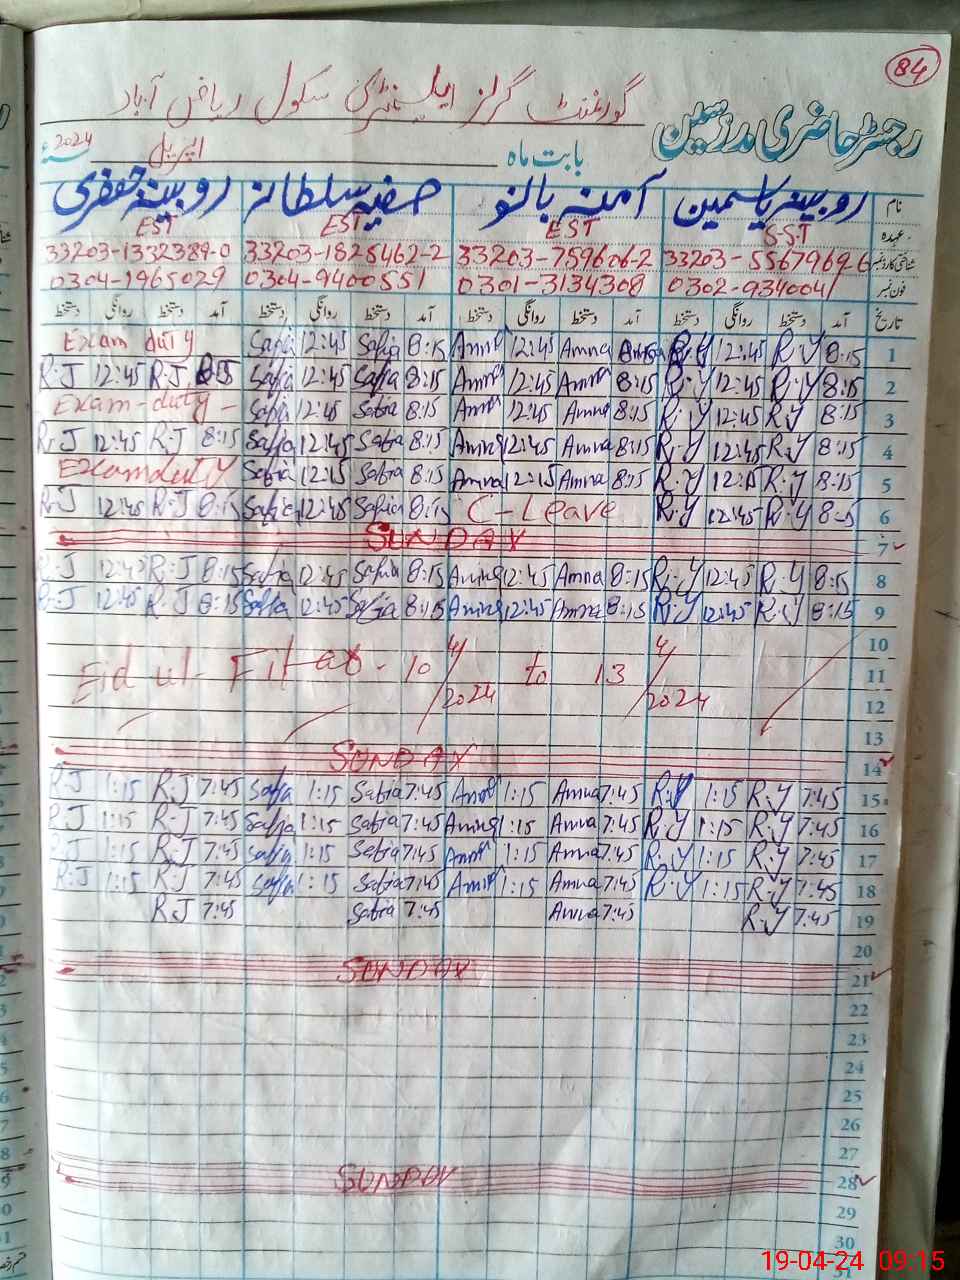 84
گورنمنٹ گرلز ایلیمنٹری سکول ریاض آباد
رجسٹر حاضری مدرسین
بابت ماہ اپریل 2024ء
نام روبینہ یاسمین آمنہ بانو صفیہ سلطانہ روبینہ جعفری
عہدہ SST EST EST EST
شناختی کارڈ نمبر 33203-5567969-6 33203-759606-2 33203-1825462-2 33203-1332389-0
فون نمبر 0302-9340041 0301-3134308 0304-9400551 0304-1965029
تاریخ آمد دستخط روانگی دستخط آمد دستخط روانگی دستخط آمد دستخط روانگی دستخط آمد دستخط روانگی دستخط
Exam duty Safia 12:45 Safia 8:15 Amna 12:45 Amna R.Y 12:45 R.Y 8:15 1
R.J 12:45 R.J Safia 12:45 Safia 8:15 Amna 12:45 Amna 8:15 R.Y 12:45 R.Y 8:15 2
Exam-duty - Safia 12:45 Safia 8:15 Amna 12:45 Amna 8:15 R.Y 12:45 R.Y 8:15 3
R.J 12:45 R.J 8:15 Safia 12:45 Safia 8:15 Amna 12:45 Amna 8:15 R.Y 12:45 R.Y 8:15 4
Exam duty Safia 12:15 Safia 8:15 Amna 12:15 Amna 8:15 R.Y 12:15 R.Y 8:15 5
R.J 12:45 R.J 8:15 Safia 12:45 Safia 8:15 C-Leave R.Y 12:45 R.Y 8:15 6
SUNDAY 7
R.J 12:45 R.J 8:15 Safia 12:45 Safia 8:15 Amna 12:45 Amna 8:15 R.Y 12:45 R.Y 8:15 8
R.J 12:45 R.J 8:15 Safia 12:45 Safia 8:15 Amna 12:45 Amna 8:15 R.Y 12:45 R.Y 8:15 9
10
Eid ul-Fitar. 10/4/2024 to 13/4/2024 11
12
13
SUNDAY 14
R.J 1:15 R.J 7:45 Safia 1:15 Safia 7:45 Amna 1:15 Amna 7:45 R.Y 1:15 R.Y 7:45 15
R.J 1:15 R.J 7:45 Safia 1:15 Safia 7:45 Amna 1:15 Amna 7:45 R.Y 1:15 R.Y 7:45 16
R.J 1:15 R.J 7:45 Safia 1:15 Safia 7:45 Amna 1:15 Amna 7:45 R.Y 1:15 R.Y 7:45 17
R.J 1:15 R.J 7:45 Safia 1:15 Safia 7:45 Amna 1:15 Amna 7:45 R.Y 1:15 R.Y 7:45 18
R.J 7:45 Safia 7:45 Amna 7:45 R.Y 7:45 19
20
SUNDAY 21
22
23
24
25
26
27
SUNDAY 28
29
30
31
19-04-24 09:15